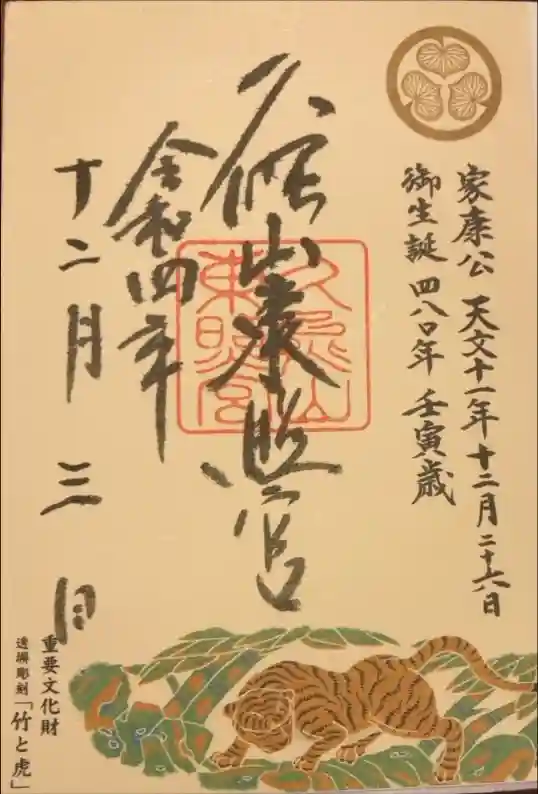 家康公 天文十一年十二月二十六日
御生誕 四八〇年 壬寅歳
久能山東照宮
久能山
東照宮
令和四年
十二月三日
重要文化財
透塀彫刻「竹と虎」